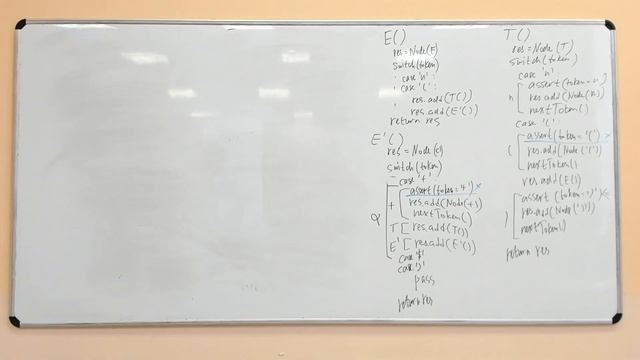 E()
res=Node(E)
switch(token)
case 'n':
case '(':
res.add(T())
res.add(E'())
return res
E'()
res=Node(E')
switch(token)
case '+':
assert(token='+')
+ res.add(Node(+))
nextToken()
T res.add(T())
E' res.add(E'())
case '$'
case ')'
pass
return res
T()
res=Node(T)
switch(token)
case 'n'
assert(token=n)
n res.add(Node(n))
nextToken()
case '('
assert(token='(')
( res.add(Node('('))
nextToken()
res.add(E())
assert(token=')')
) res.add(Node(')'))
nextToken()
return res